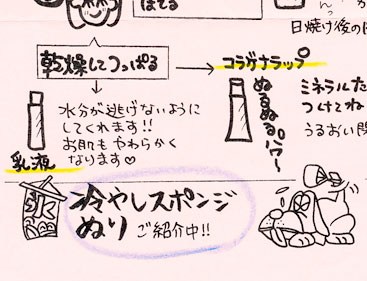 ほてる
日焼け後の
乾燥してつっぱる
コラーゲナラップ
水分が逃げないように
してくれます!!
お肌もやわらかく
なります♡
乳液
ぬるぬるパワ〜
ミネラルた
つけてね
うるおい
氷
冷やしスポンジ
ぬり ご紹介中!!